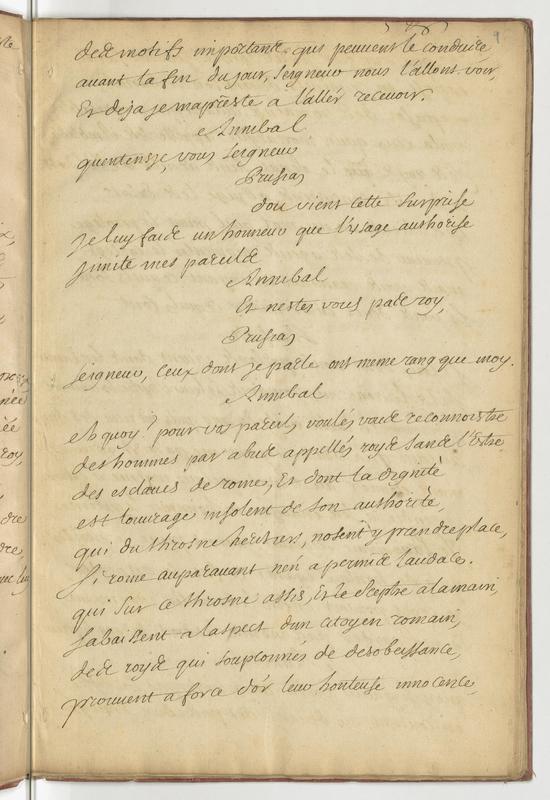 9
dese motifs importants qui peuvent le conduire
avant la fin du jour, seigneur nous l'allons voir,
Et deja je m'apreste a l'aller recevoir.
Annibal
quentensje, vous seigneur
Prusias
dou vient cette surprise
Je luy fais un honneur que l'usage authorise
Jimite mes pareils
Annibal
Et nestes vous pas roy,
Prusias
seigneur, ceux dont je parle ont meme rang que moy.
Annibal
eh quoy? pour vos pareils voulés vous reconnoistre
des hommes par abus appellés roys sans l'Estre
des esclaves de rome, Et dont la dignité
est louvrage insolent de son authorité,
qui du throsne heritiers, nosent y prendre place,
si rome auparavant nen a permis laudace.
qui sur ce throsne assis, Et le sceptre a la main,
sabaissent a laspect dun citoyen romain,
des roys qui soupconnés de desobeissance,
prouvent a force dor leur honteuse innocence,